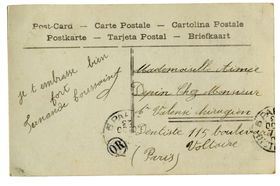 Post-Card – Carte Postale – Cartolina Postale
Postkarte – Tarjeta Postal – Briefkaart
je t embrasse bien
fort
Fernande Toussaint
Mademoiselle Aimée
Chez Monsieur
Dentiste 115 boulevard
Voltaire
(Paris)
OR